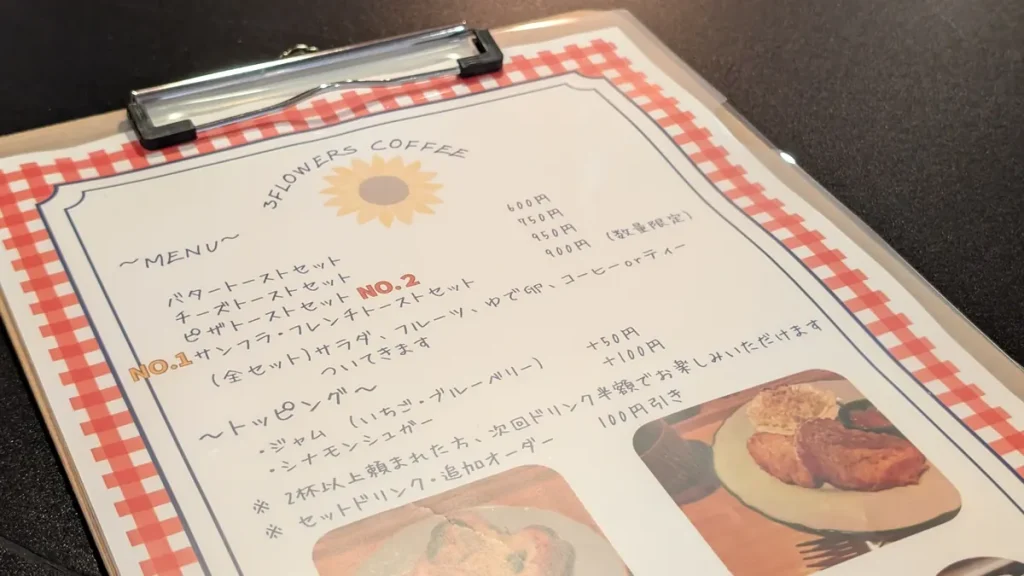 3FLOWERS COFFEE
～MENU～
バタートーストセット 600円
チーズトーストセット 750円
ピザトーストセット NO.2 950円
NO.1 サンフラ・フレンチトーストセット 900円 (数量限定)
(全セット)サラダ、フルーツ、ゆで卵、コーヒーorティー
ついてきます
～トッピング～
・ジャム (いちご・ブルーベリー) +50円
・シナモンシュガー +100円
※ 2杯以上頼まれた方、次回ドリンク半額でお楽しみいただけます
※ セットドリンク・追加オーダー 100円引き